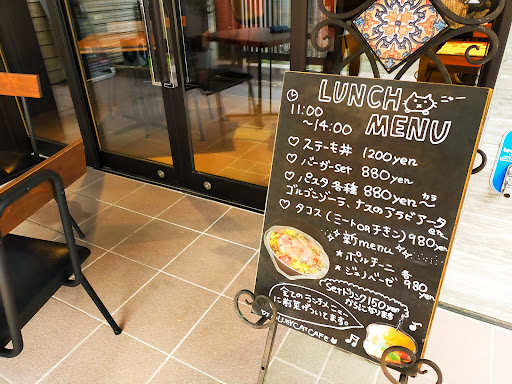 LUNCH
MENU
11:00
~14:00
♡ ステーキ丼 1200yen
♡ バーガーset 880yen
♡ パスタ各種 880yen~
から
ゴルゴンゾーラ、ナスのアラビアータ
♡ タコス (ミートORチキン) 980yen
新menu
★ ポルチーニ
★ ジェノベーゼ
各980yen
Setドリンク150yen
からになります
全てのランチメニュー
に前菜がついてます。
CATCAFE